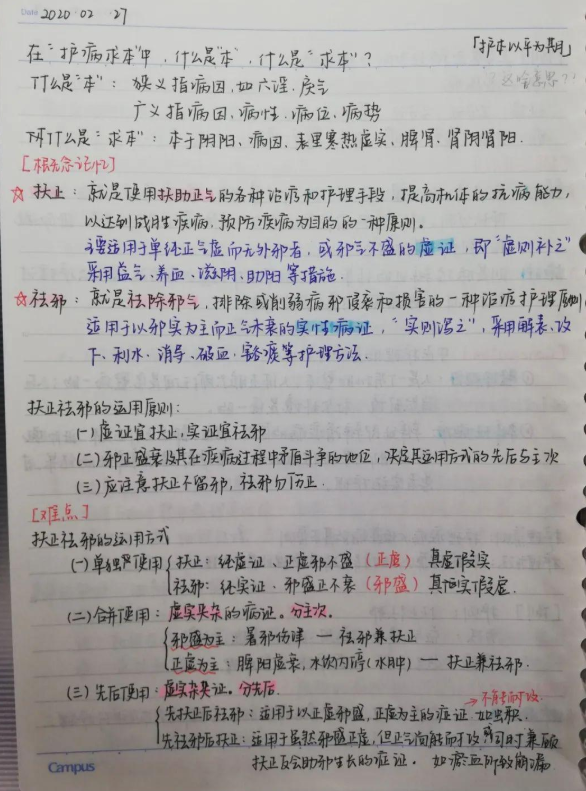 Date 2020 02 27
在"护病求本"中,什么是"本",什么是"求本"?
「护本以平为期」
什么是"本":狭义指病因,如六淫、疠气
?这啥意思??
广义指病因、病性、病位、病势
什么是"求本":本于阴阳、病因、表里寒热虚实、脾肾、肾阴肾阳.
[概念记忆]
☆ 扶正:就是使用扶助正气的各种治疗和护理手段,提高机体的抗病能力,
以达到战胜疾病、预防疾病为目的的一种原则。
主要适用于单纯正气虚而无外邪者,或邪气不盛的虚证,即"虚则补之"
采用益气、养血、滋阴、助阳等措施
☆ 祛邪:就是祛除邪气,排除或削弱病邪侵袭和损害的一种治疗护理原则
适用于以邪实为主而正气未衰的实性病证,"实则泻之",采用解表、攻
下、利水、消导、破血、豁痰等护理方法.
扶正祛邪的运用原则:
(一)虚证宜扶正,实证宜祛邪
(二)邪正盛衰及其在疾病过程中矛盾斗争的地位,决定其运用方式的先后与主次
(三)应注意扶正不留邪,祛邪勿伤正.
[难点]
扶正祛邪的运用方式
(一)单独使用 扶正:纯虚证、正虚邪不盛(正虚)真虚假实
祛邪:纯实证、邪盛正不衰(邪盛)真实假虚.
(二)合并使用:虚实夹杂的病证。分主次。
邪盛为主:暑邪伤津 — 祛邪兼扶正
正虚为主:脾阳虚衰,水饮内停(水肿) — 扶正兼祛邪.
(三)先后使用:虚实夹杂证。分先后.
→不能耐攻.
先扶正后祛邪:适用于以正虚邪盛,正虚为主的症证.如虫积.
先祛邪后扶正:适用于虽然邪盛正虚,但正气尚能耐攻,或同时兼顾
扶正反会助邪生长的症证. 如瘀血所致崩漏
Campus